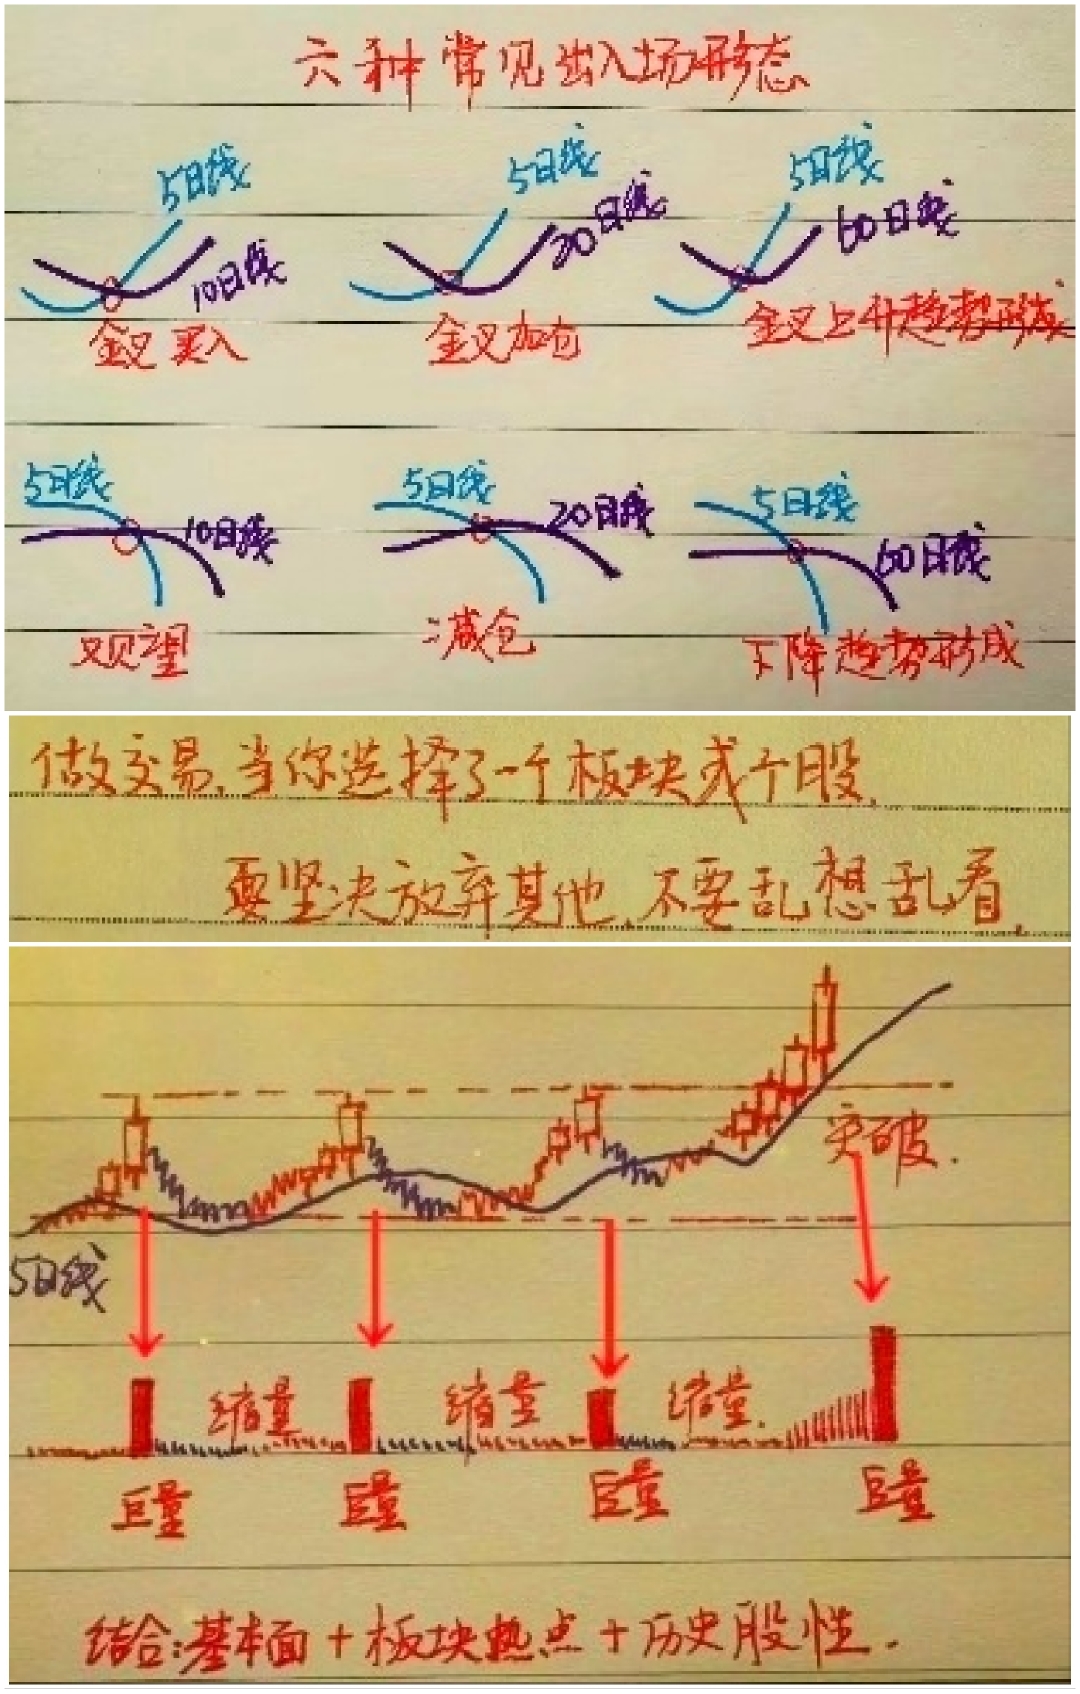 六种常见出入场形态
5日线 5日线 5日线
10日线 20日线 60日线
金叉买入 金叉加仓 金叉上升趋势形成
5日线 5日线 5日线
10日线 20日线 60日线
观望 减仓 下降趋势形成
做交易,当你选择了一个板块或个股,
要坚决放弃其他,不要乱想乱看.
突破.
5日线
缩量 缩量 缩量.
巨量 巨量 巨量 巨量
结合:基本面+板块热点+历史股性.